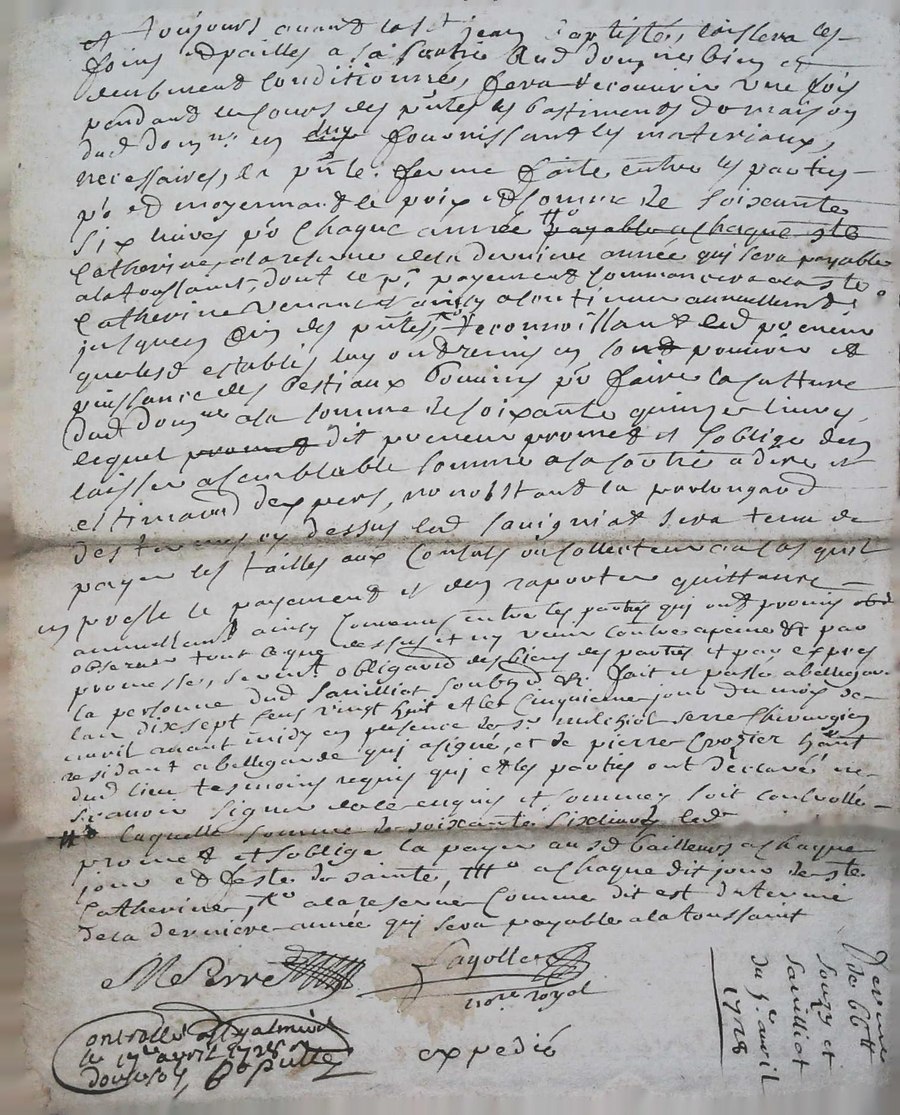 et toujours avant la st jean baptiste, laissera les
foins et pailles a sa sortie dud domne bien et
deubment conditionnés, fera recouvrir une fois
pendant le cours des pntes les bastiments de maison
dud domne en fournissant les materiaux
necessaires, la pnte ferme faite entre les parties
po et moyennant le prix et somme de soixante
six livres po chaque année payable a chaque ste
Catherine, a la reserve de la derniere année qui sera payable
a la toussaint, dont le pr payement commancera a la ste
Catherine venant et ainsy a continuer annuellement
jusques fin des pntes, reconnoissant led preneur
que lesd establis luy ont remis en son pouvoir et
puissance des bestiaux bovins po faire la culture
dud domne a la somme de soixante quinze livres
lequel promet dit preneur promet et s'oblige den
laisser a semblable somme a la sortie a dire et
estimaon dexpers, nonobstant la prolongaon
des termes cy dessus led sauigniat sera tenu de
payer les tailles aux Consuls ou collecteurs quil
en presse le payement et den raporter quittance
annuellemt ainsy convenu entre les parties qui ont promis
observer tout ce que dessus et ny venir contre a peine &c par
promesse, serment obligaon des biens des parties et par expres
la personne dud sauilliat soubzd &c fait et passé a bellegarde
lan dix sept cens vingt huit et le cinquieme jour du mois de
avril avant midy en presence de sr milchiol serre Chirurgien
residant a bellegarde qui a signé, et de pierre Crozier hânt
dud lieu tesmoins requis qui et les parties ont déclaré ne
scavoir signer de ce enquis et sommés soit controllé
laquelle somme de soixante six livres led
promet et soblige la payer ausd bailleurs a chaque
jour et feste de sainte, a chaque dit jour de ste
Catherine, a la reserve comme dit est du terme
de la derniere année qui sera payable a la toussaint
M Serre
Fayolle
nore royal
controllé
le 17e avril 1728
expedié
ferme
de 66 tt
Souzy et
sauilliat
du 5e avril
1728